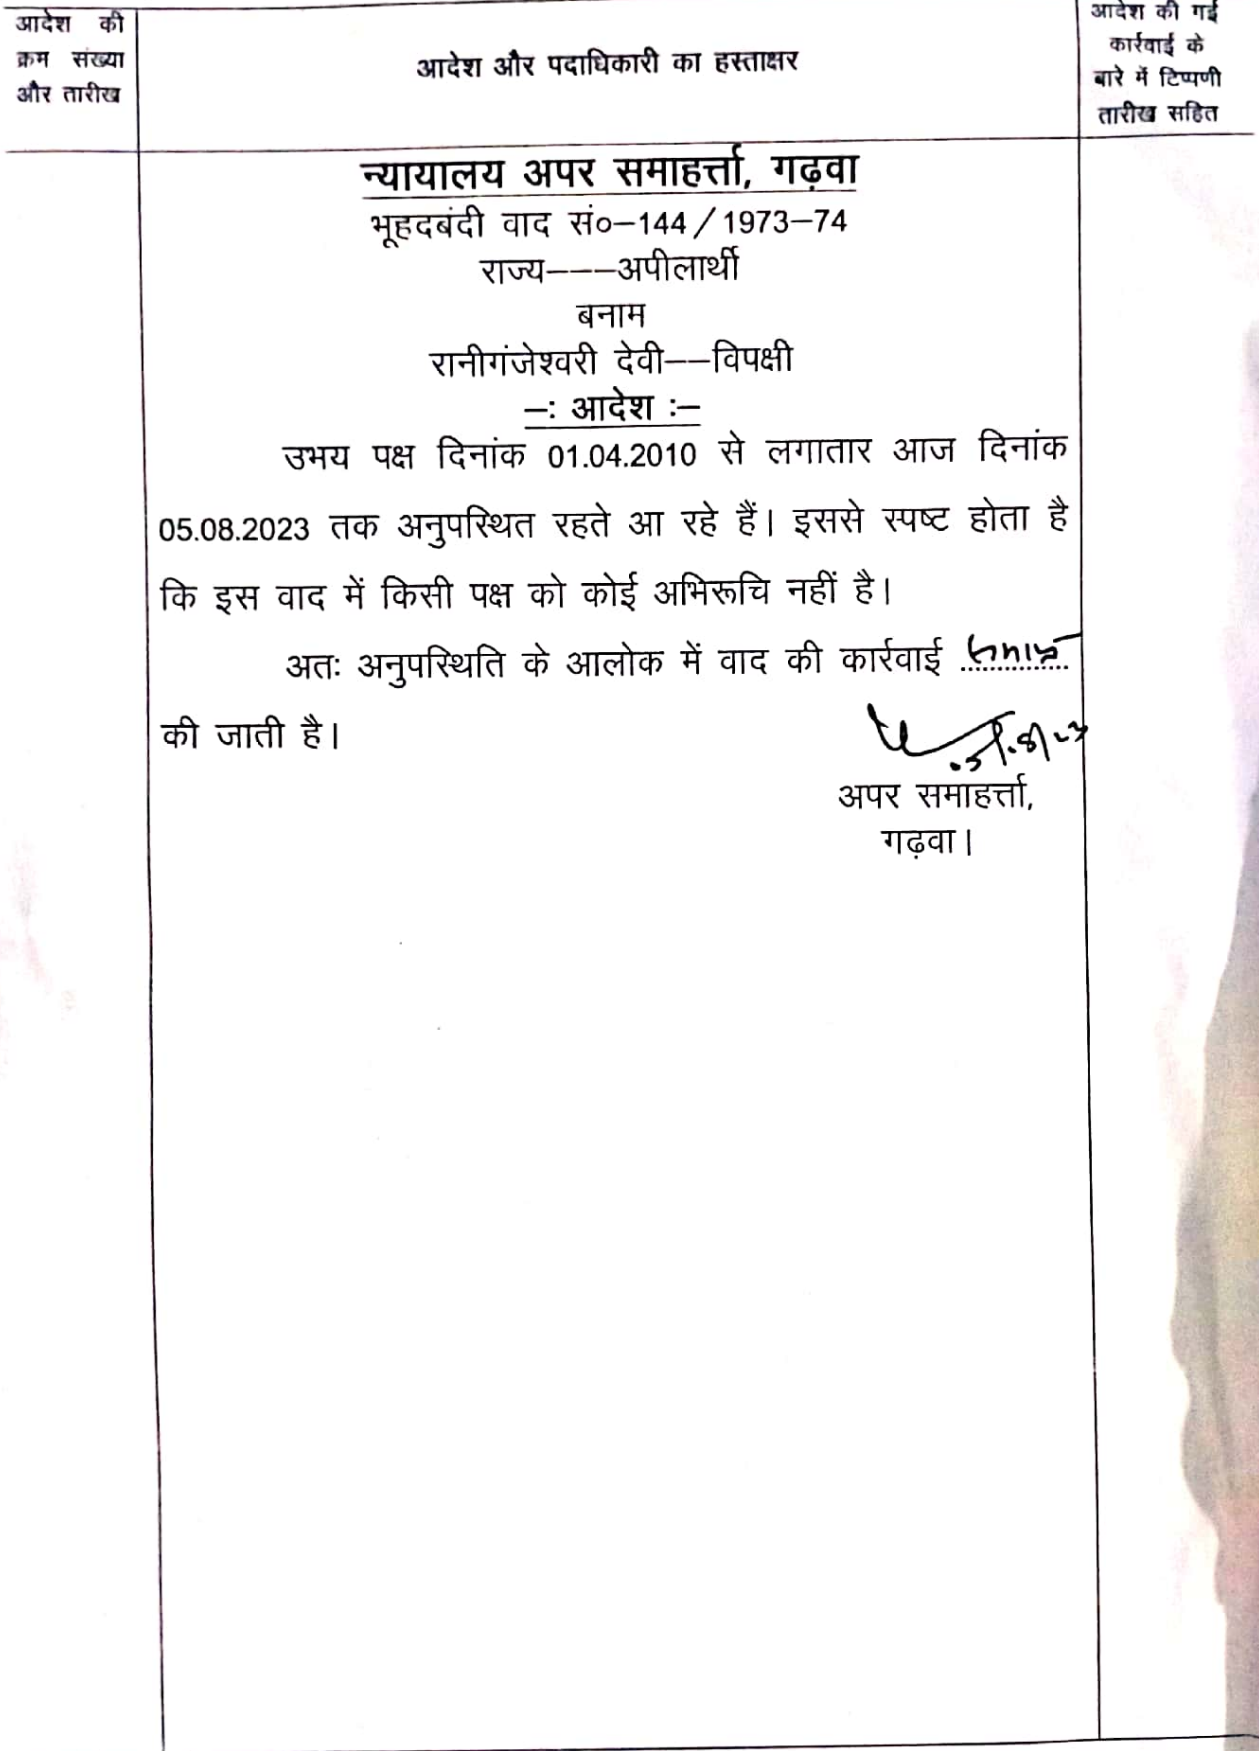 आदेश की
क्रम संख्या
और तारीख
आदेश और पदाधिकारी का हस्ताक्षर
आदेश की गई
कार्रवाई के
बारे में टिप्पणी
तारीख सहित
न्यायालय अपर समाहर्त्ता, गढ़वा
भूहदबंदी वाद सं०–144/1973–74
राज्य–––अपीलार्थी
बनाम
रानीगंजेश्वरी देवी––विपक्षी
–: आदेश :–
उभय पक्ष दिनांक 01.04.2010 से लगातार आज दिनांक
05.08.2023 तक अनुपस्थित रहते आ रहे हैं। इससे स्पष्ट होता है
कि इस वाद में किसी पक्ष को कोई अभिरूचि नहीं है।
अतः अनुपस्थिति के आलोक में वाद की कार्रवाई समाप्त
की जाती है।
अपर समाहर्त्ता,
गढ़वा।